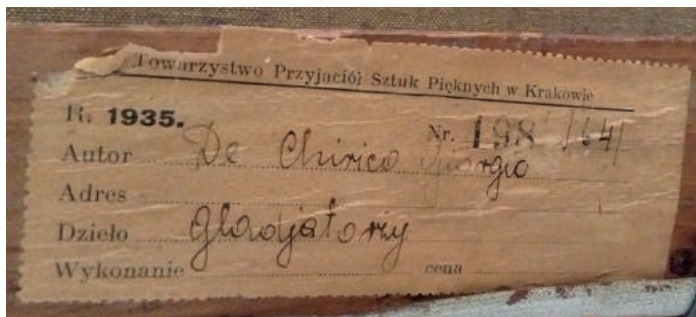 Towarzystwo Przyjaciół Sztuk Pięknych w Krakowie
R. 1935.
Nr. 198 /64/
Autor De Chirico Giorgio
Adres
Dzieło Gladjatorzy
Wykonanie cena